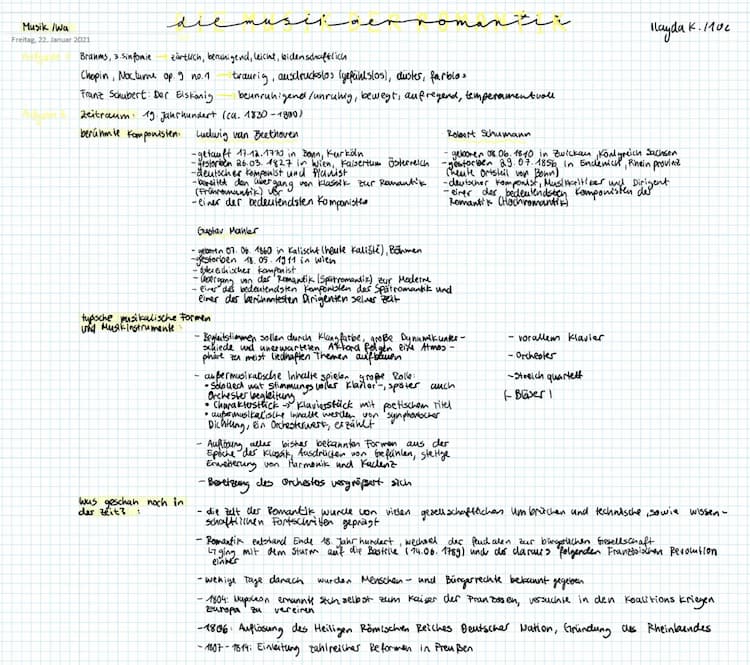 Musik / Wa
die musik der romantik
DIE MUSIK DER ROMANTIK
Ilayda K. / 10c
Freitag, 22. Januar 2021
Aufgabe 1:
Brahms, 3. Sinfonie → zärtlich, beruhigend, leicht, leidenschaftlich
Chopin, Nocturne op. 9 no. 1 → traurig, ausdruckslos (gefühlslos), düster, farblos
Franz Schubert: Der Elskönig → beunruhigend/unruhig, bewegt, aufregend, temperamentvoll
Zeitraum: 19. Jahrhundert (ca. 1830-1900)
berühmte Komponisten:
Ludwig van Beethoven
- getauft 17.12.1770 in Bonn, Kurköln
- gestorben 26.03.1827 in Wien, Kaisertum Österreich
- deutscher Komponist und Pianist
- bereitet den Übergang von Klassik zur Romantik
(Frühromantik) vor
- einer der bedeutendsten Komponisten
Robert Schumann
- geboren 08.06.1810 in Zwickau, Königreich Sachsen
- gestorben 29.07.1856 in Endenich, Rheinprovinz
(heute Ortsteil von Bonn)
- deutscher Komponist, Musikkritiker und Dirigent
- einer der bedeutendsten Komponisten der
Romantik (Hochromantik)
Gustav Mahler
- geboren 07.07.1860 in Kalischt (heute Kaliště), Böhmen
- gestorben 18.05.1911 in Wien
- österreichischer Komponist
- Übergang von der Romantik (Spätromantik) zur Moderne
- einer des bedeutendsten Komponisten des Spätromantik und
einer der berühmtesten Dirigenten seiner Zeit
typische musikalische Formen
und Musikinstrumente:
- Begleitstimmen sollen durch Klangfarbe, große Dynamikunter-
schiede und unerwarteten Akkordfolgen eine Atmos-
phäre zu meist liedhaften Themen aufbauen
- außermusikalische Inhalte spielen große Rolle:
• Sololied mit stimmungsvoller Klavier-, später auch
Orchesterbegleitung
• Charakterstück → Klavierstück mit poetischem Titel
• außermusikalische Inhalte werden von symphonischer
Dichtung, ein Orchesterwerk, erzählt
- Auflösung aller bisher bekannten Formen aus der
Epoche der Klassik, Ausdrücken von Gefühlen, stetige
Erweiterung von Harmonik und Kadenz
- Besetzung des Orchesters vergrößert sich
- vor allem Klavier
- Orchester
- Streichquartett
(- Bläser)
Was geschah noch in
der Zeit?:
- die Zeit der Romantik wurde von vielen gesellschaftlichen Umbrüchen und technische, sowie wissen-
schaftlichen Fortschritten geprägt
- Romantik entstand Ende 18. Jahrhundert, wechsel der feudalen zur bürgerlichen Gesellschaft
↳ ging mit dem Sturm auf die Bastille (14.06.1789) und der daraus folgenden Französischen Revolution
einher
- wenige Tage danach wurden Menschen- und Bürgerrechte bekannt gegeben
- 1804: Napoleon ernannte sich selbst zum Kaiser der Franzosen, versuchte in den Koalitionskriegen
Europa zu vereinen
- 1806: Auflösung des Heiligen Römischen Reiches Deutscher Nation, Gründung des Rheinbundes
- 1807-1814: Einleitung zahlreicher Reformen in Preußen